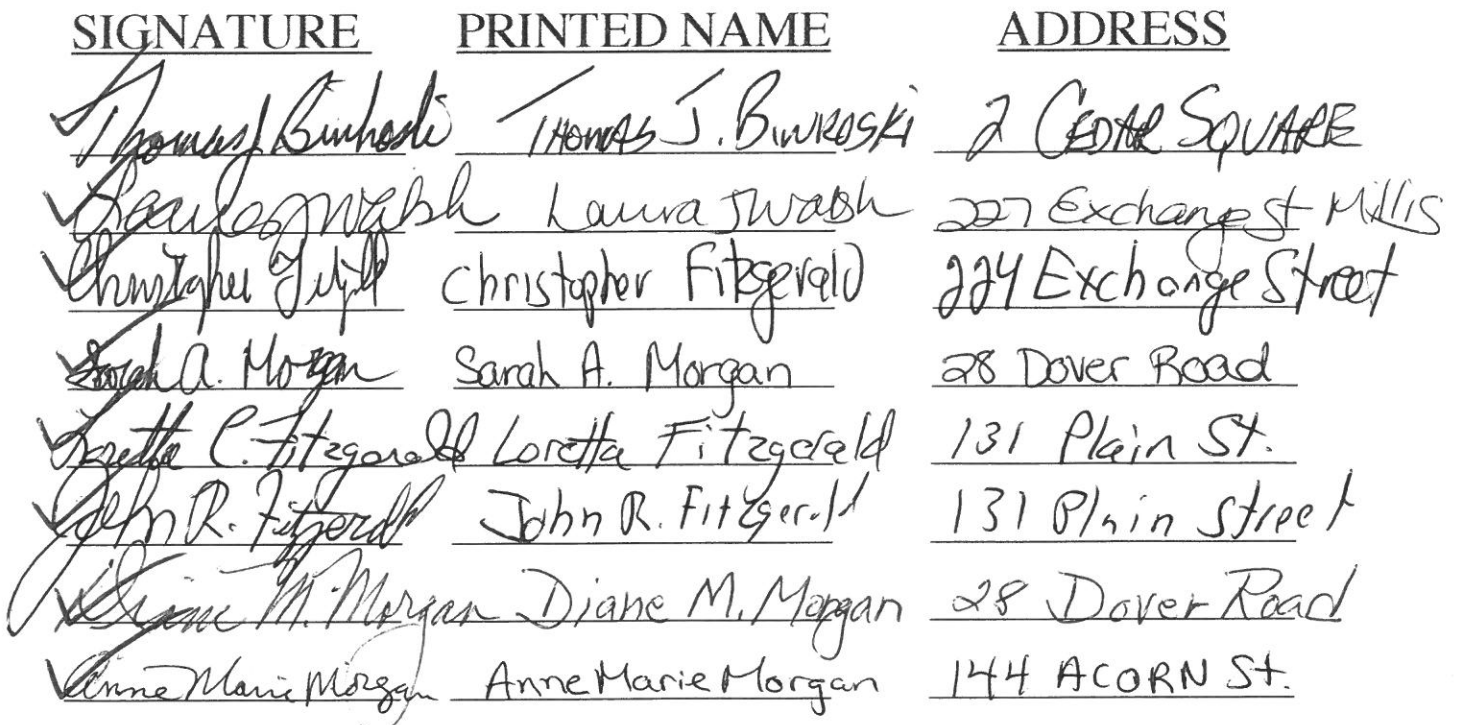 SIGNATURE PRINTED NAME ADDRESS
Thomas J Binkoski THOMAS J. BINKOSKI 2 CEDAR SQUARE
Laura J Walsh Laura J Walsh 227 Exchange St Millis
Christopher Christopher Fitzgerald 224 Exchange Street
Sarah A. Morgan Sarah A. Morgan 28 Dover Road
Loretta C. Fitzgerald Loretta Fitzgerald 131 Plain St.
John R. Fitzgerald John R. Fitzgerald 131 Plain Street
Diane M. Morgan Diane M. Morgan 28 Dover Road
Anne Marie Morgan Anne Marie Morgan 144 ACORN St.